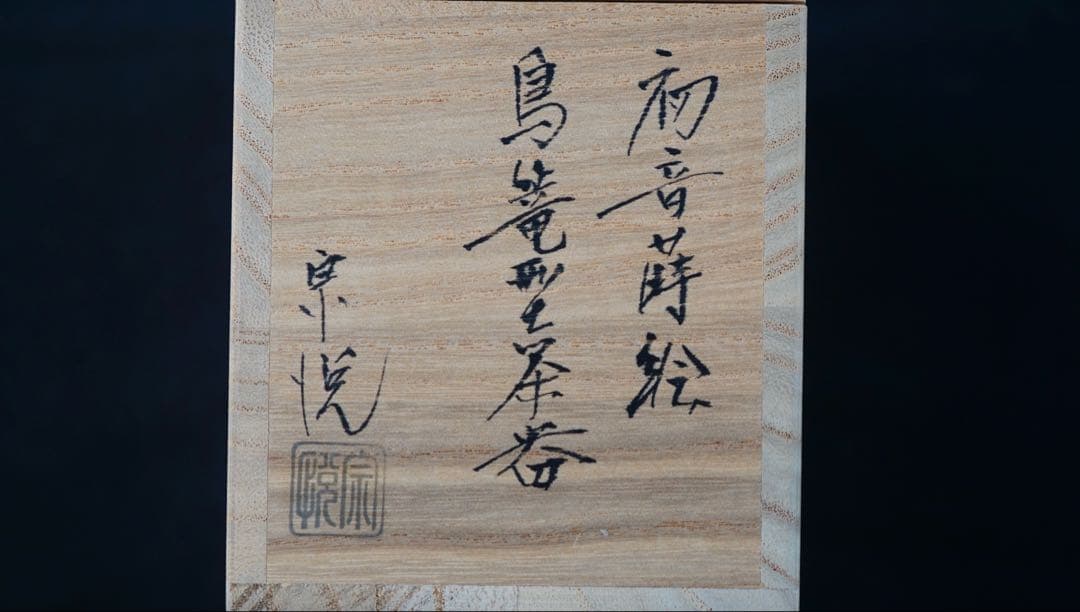 初音蒔絵
鳥籠型茶器
宗悦
宗悦